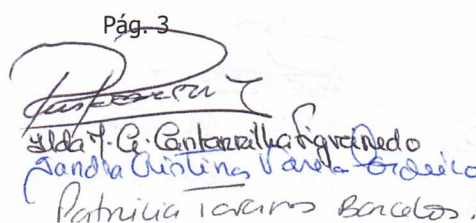 Pág. 3
Ilda T. G. Cantarilha Figueiredo
Sandra Cristina Varela Cordeiro
Patrícia Tavares Barcelos